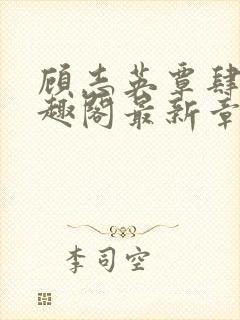 顾志英覃肆
趣阁最新章
李司空